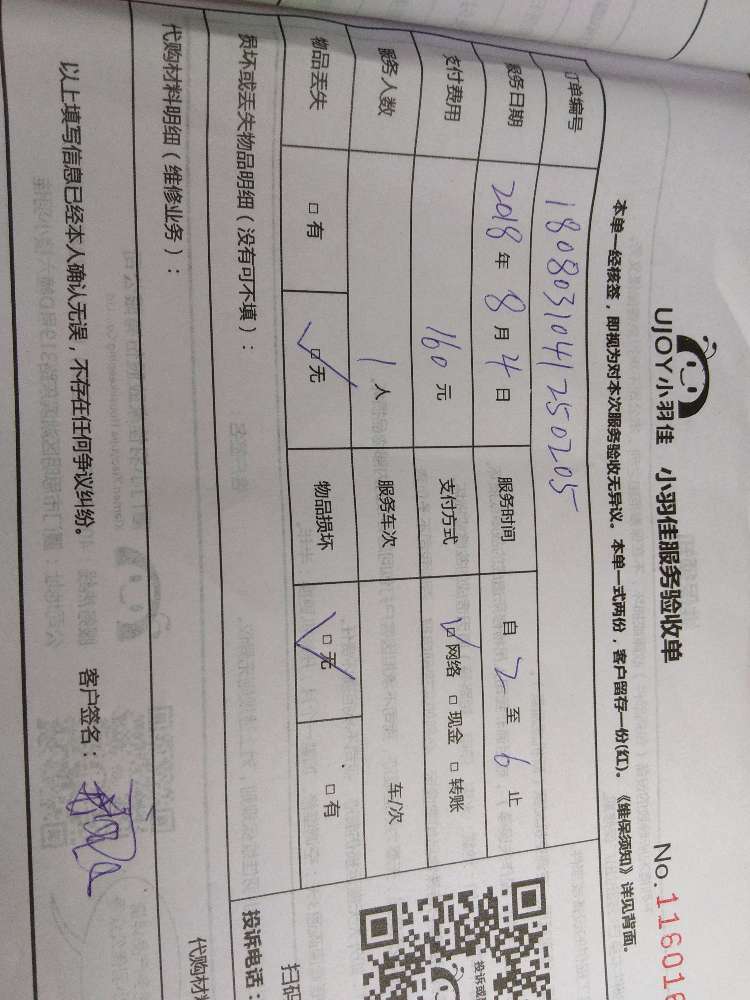 UJOY小羽佳 小羽佳服务验收单 No.116016
本单一经核签，即视为对本次服务验收无异议。本单一式两份，客户留存一份(红)。《维保须知》详见背面。
订单编号 1808031041250205
服务日期 2018年8月4日 服务时间 自2至6止
支付费用 160元 支付方式 ☑网络 □现金 □转账
服务人数 1人 服务车次 车/次
物品丢失 □有 ☑无 物品损坏 ☑无 □有
损坏或丢失物品明细（没有可不填）：
投诉电话：
扫码
代购材料明细（维修业务）：
代购材
以上填写信息已经本人确认无误，不存在任何争议纠纷。 客户签名：